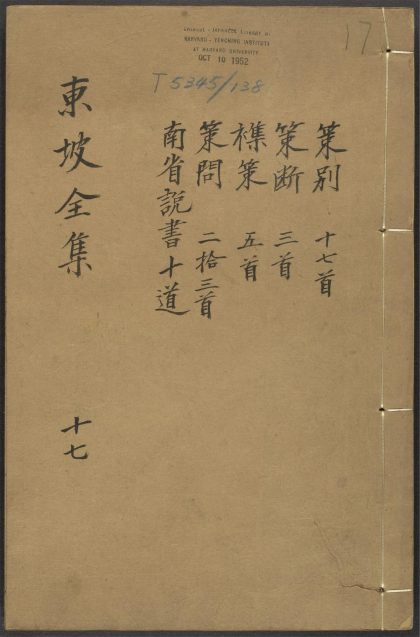 CHINESE - JAPANESE LIBRARY OF
HARVARD - YENCHING INSTITUTE
AT HARVARD UNIVERSITY
OCT 10 1952
17
T 5345/138
策别 十七首
策断 三首
襍策 五首
策問 二拾三首
南省説書十道
東坡全集
十七